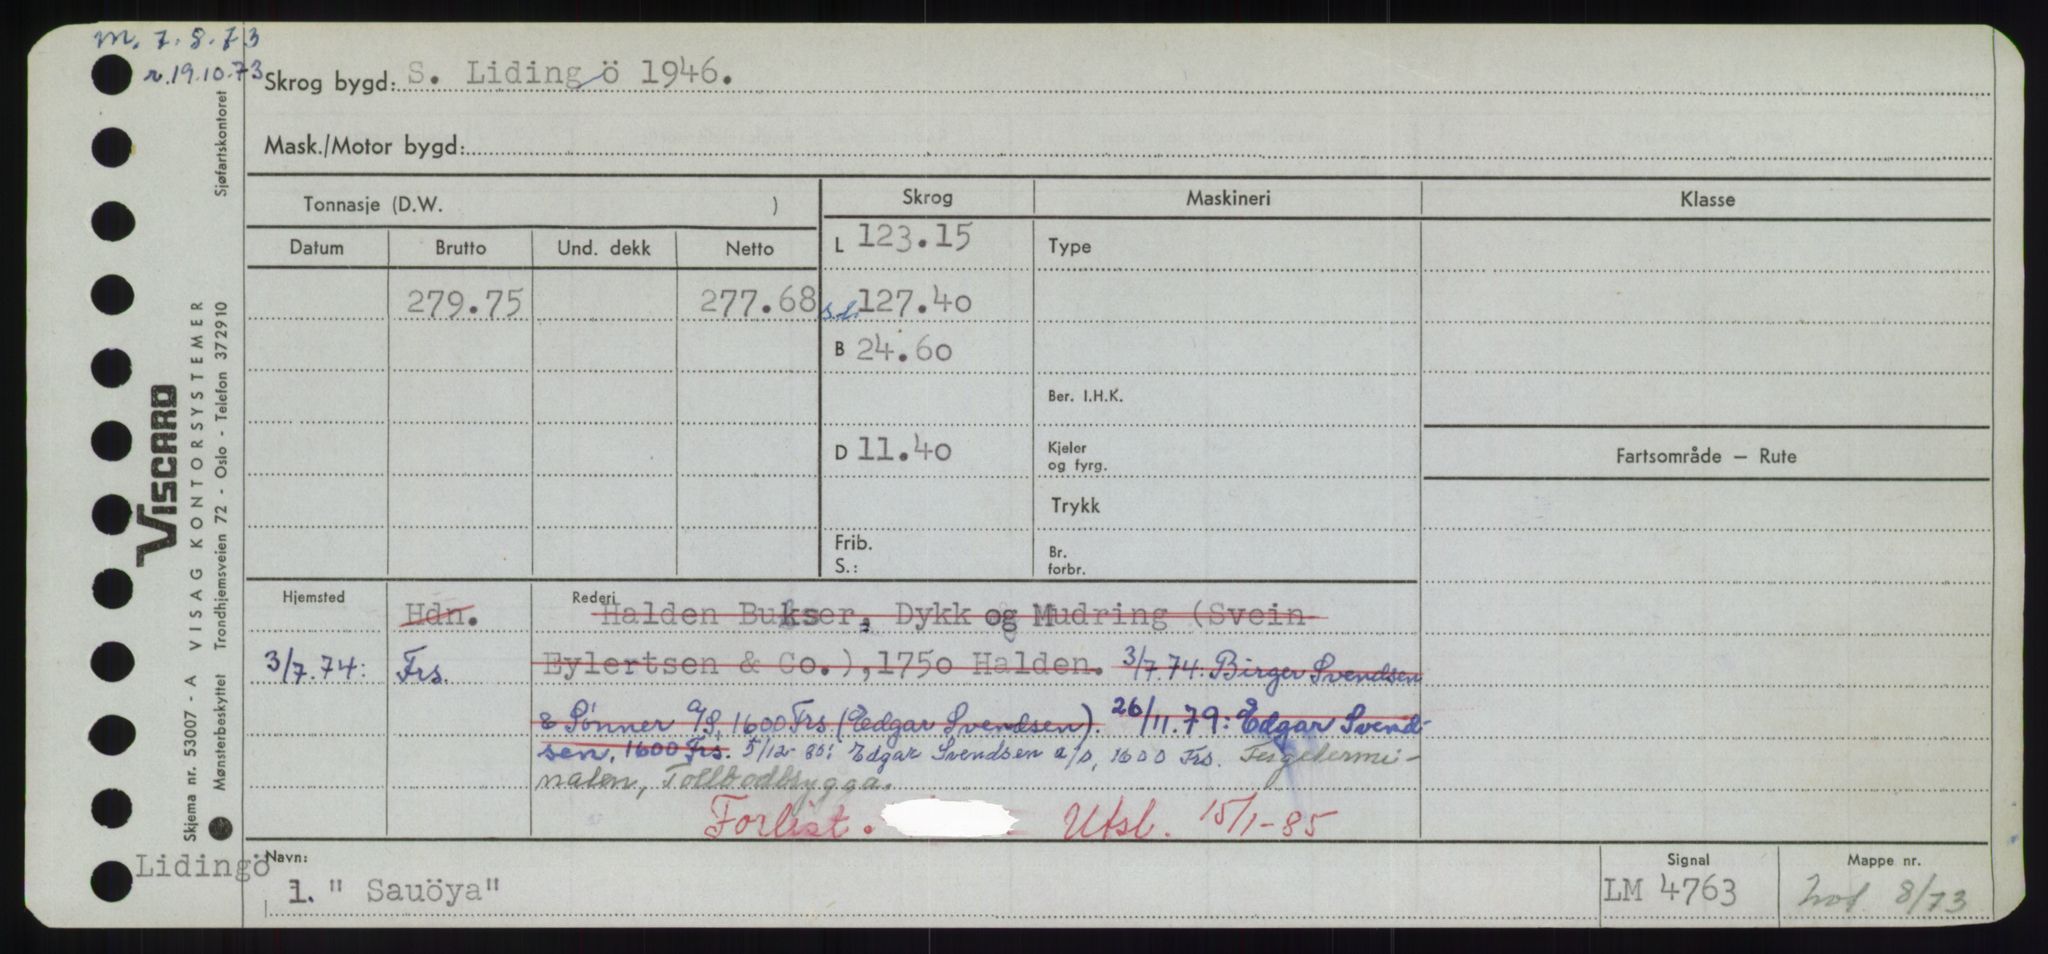 m. 7.8.73
r. 19.10.73
Skrog bygd: S. Lidingö 1946.
Mask./Motor bygd:
Tonnasje (D.W. )
Skrog
Maskineri
Klasse
Datum
Brutto
Und. dekk
Netto
L 123.15
Type
279.75
277.68
s.l. 127.40
B 24.60
Ber. I.H.K.
D 11.40
Kjeler
og fyrg.
Fartsområde – Rute
Trykk
Frib.
S.:
Br.
forbr.
Hjemsted
Hdn.
Rederi
Halden Bukser, Dykk og Mudring (Svein
3/7.74: Frs.
Eylertsen & Co.), 1750 Halden. 3/7.74: Birger Svendsen
& Sønner A/S, 1600 Frs. (Edgar Svendsen). 26/11.79: Edgar Svend-
sen, 1600 Frs. 5/12-80: Edgar Svendsen a/s, 1600 Frs. Fergetermi-
nalen, Tollbodbrygga.
Forlist. Utsl. 15/1-85
Navn:
Lidingö
1. " Sauöya"
Signal
LM 4763
Mappe nr.
8/73
Skjema nr. 53007 - A VISAG KONTORSYSTEMER
VISCARD
Mønsterbeskyttet Trondhjemsveien 72 - Oslo - Telefon 372910
Sjøfartskontoret